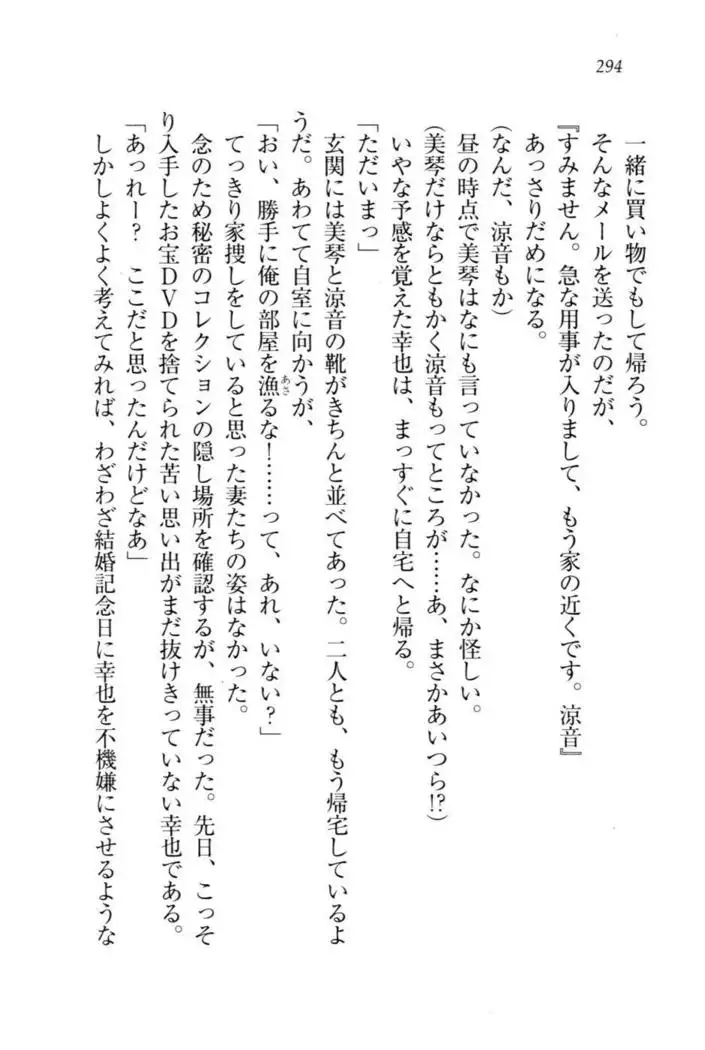 294
一緒に買い物でもして帰ろう。
そんなメールを送ったのだが、
『すみません。急な用事が入りまして、もう家の近くです。涼音』
あっさりだめになる。
(なんだ、涼音もか)
昼の時点で美琴はなにも言っていなかった。なにか怪しい。
(美琴だけならともかく涼音もってところが……あ、まさかあいつら!?)
いやな予感を覚えた幸也は、まっすぐに自宅へと帰る。
「ただいまっ」
玄関には美琴と涼音の靴がきちんと並べてあった。二人とも、もう帰宅しているよ
うだ。あわてて自室に向かうが、
「おい、勝手に俺の部屋を漁あさるな！……って、あれ、いない？」
てっきり家捜しをしていると思った妻たちの姿はなかった。
念のため秘密のコレクションの隠し場所を確認するが、無事だった。先日、こっそ
り入手したお宝DVDを捨てられた苦い思い出がまだ抜けきっていない幸也である。
「あっれー？　ここだと思ったんだけどなあ」
しかしよくよく考えてみれば、わざわざ結婚記念日に幸也を不機嫌にさせるような